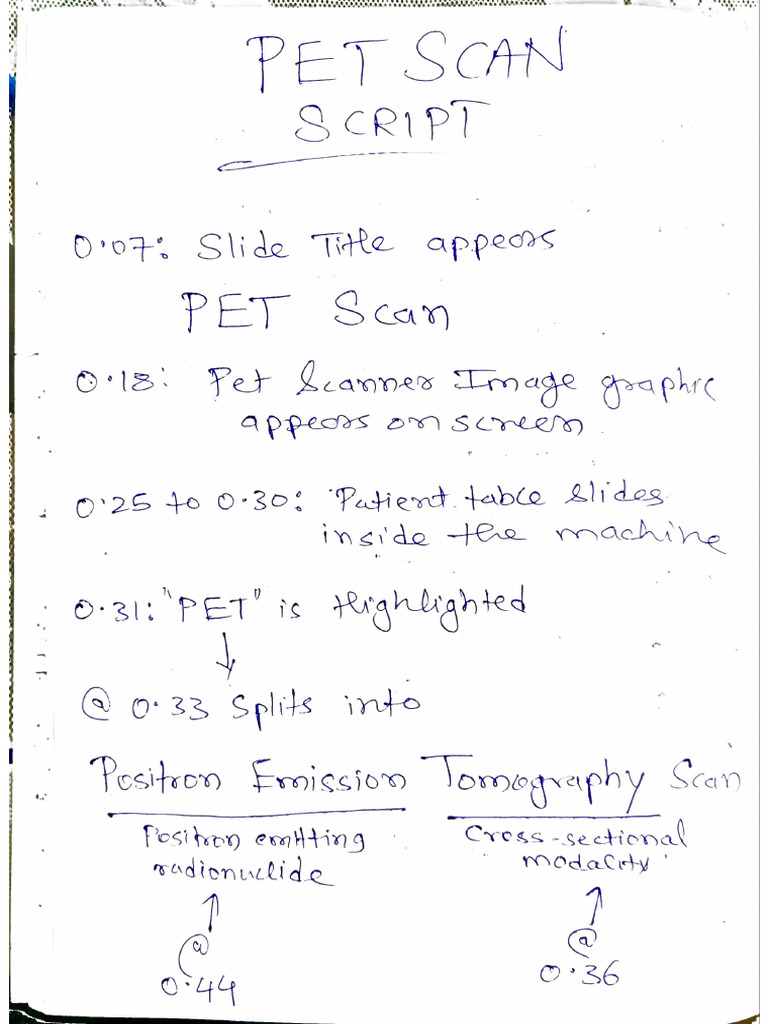 PET SCAN
SCRIPT
0.07: Slide Title appears
PET Scan
0.18: Pet Scanner Image graphic
appears on screen
0.25 to 0.30: Patient table slides
inside the machine
0.31: "PET" is Highlighted
↓
@ 0.33 Splits into
Positron Emission Tomography Scan
Positron emitting
radionuclide
Cross-sectional
modality
↑
@
0.44
↑
@
0.36